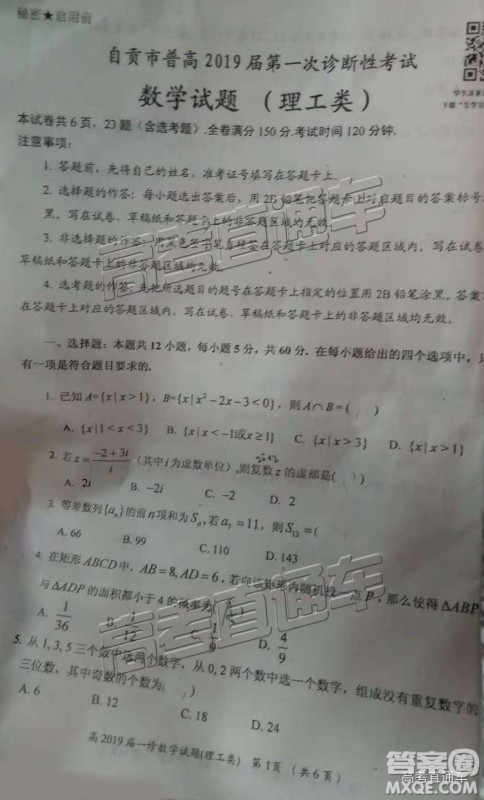 秘密★启用前
自贡市普高2019届第一次诊断性考试
数学试题 (理工类)
本试卷共6页，23题（含选考题）.全卷满分150分.考试时间120分钟.
注意事项：
1. 答题前，先将自己的姓名、准考证号填写在答题卡上.
2. 选择题的作答：每小题选出答案后，用2B铅笔把答题卡上对应题目的答案标号
黑。写在试卷、草稿纸和答题卡上的非答题区域均无效.
3. 非选择题的作答：用黑色签字笔直接答在答题卡上对应的答题区域内，写在试
草稿纸和答题卡上的非答题区域均无效.
4. 选考题的作答：先把所选题目的题号在答题卡上指定的位置用2B铅笔涂黑。答
在答题卡上对应的答题区域内，写在试卷、草稿纸和答题卡上的非答题区域均无效.
一、选择题：本题共12小题，每小题5分，共60分．在每小题给出的四个选项中，只
有一项是符合题目要求的.
1. 已知A={x|x>1}，B={x|x²-2x-3<0}，则A∩B=( )
A. {x|1<x<3} B. {x|x<-1或x≥1} C. {x|x>3} D. {x|x>1}
2. 若z=(-2+3i)/i (其中i为虚数单位)，则复数z的虚部是( )
A. 2i B. -2i C. -2 D. 2
3. 等差数列{aₙ}的前n项和为Sₙ，若a₇=11，则S₁₃=(
A. 66 B. 99 C. 110 D. 143
4. 在矩形ABCD中，AB=8,AD=6，若向该矩形内随机投一点P，那么使得△ABP
与△ADP的面积都小于4的概率为(
A. 1/36 B. 1/12 C. 1/9 D. 4/9
5. 从1,3,5三个数中选两个数字，从0,2两个数中选一个数字，组成没有重复数字的
三位数，其中奇数的个数为( )
A. 6 B. 12 C. 18 D. 24
高2019届一诊数学试题(理工类) 第1页 (共6页)
高考直通车
高考直通车
答案圈
高考直通车
MXQE.COM